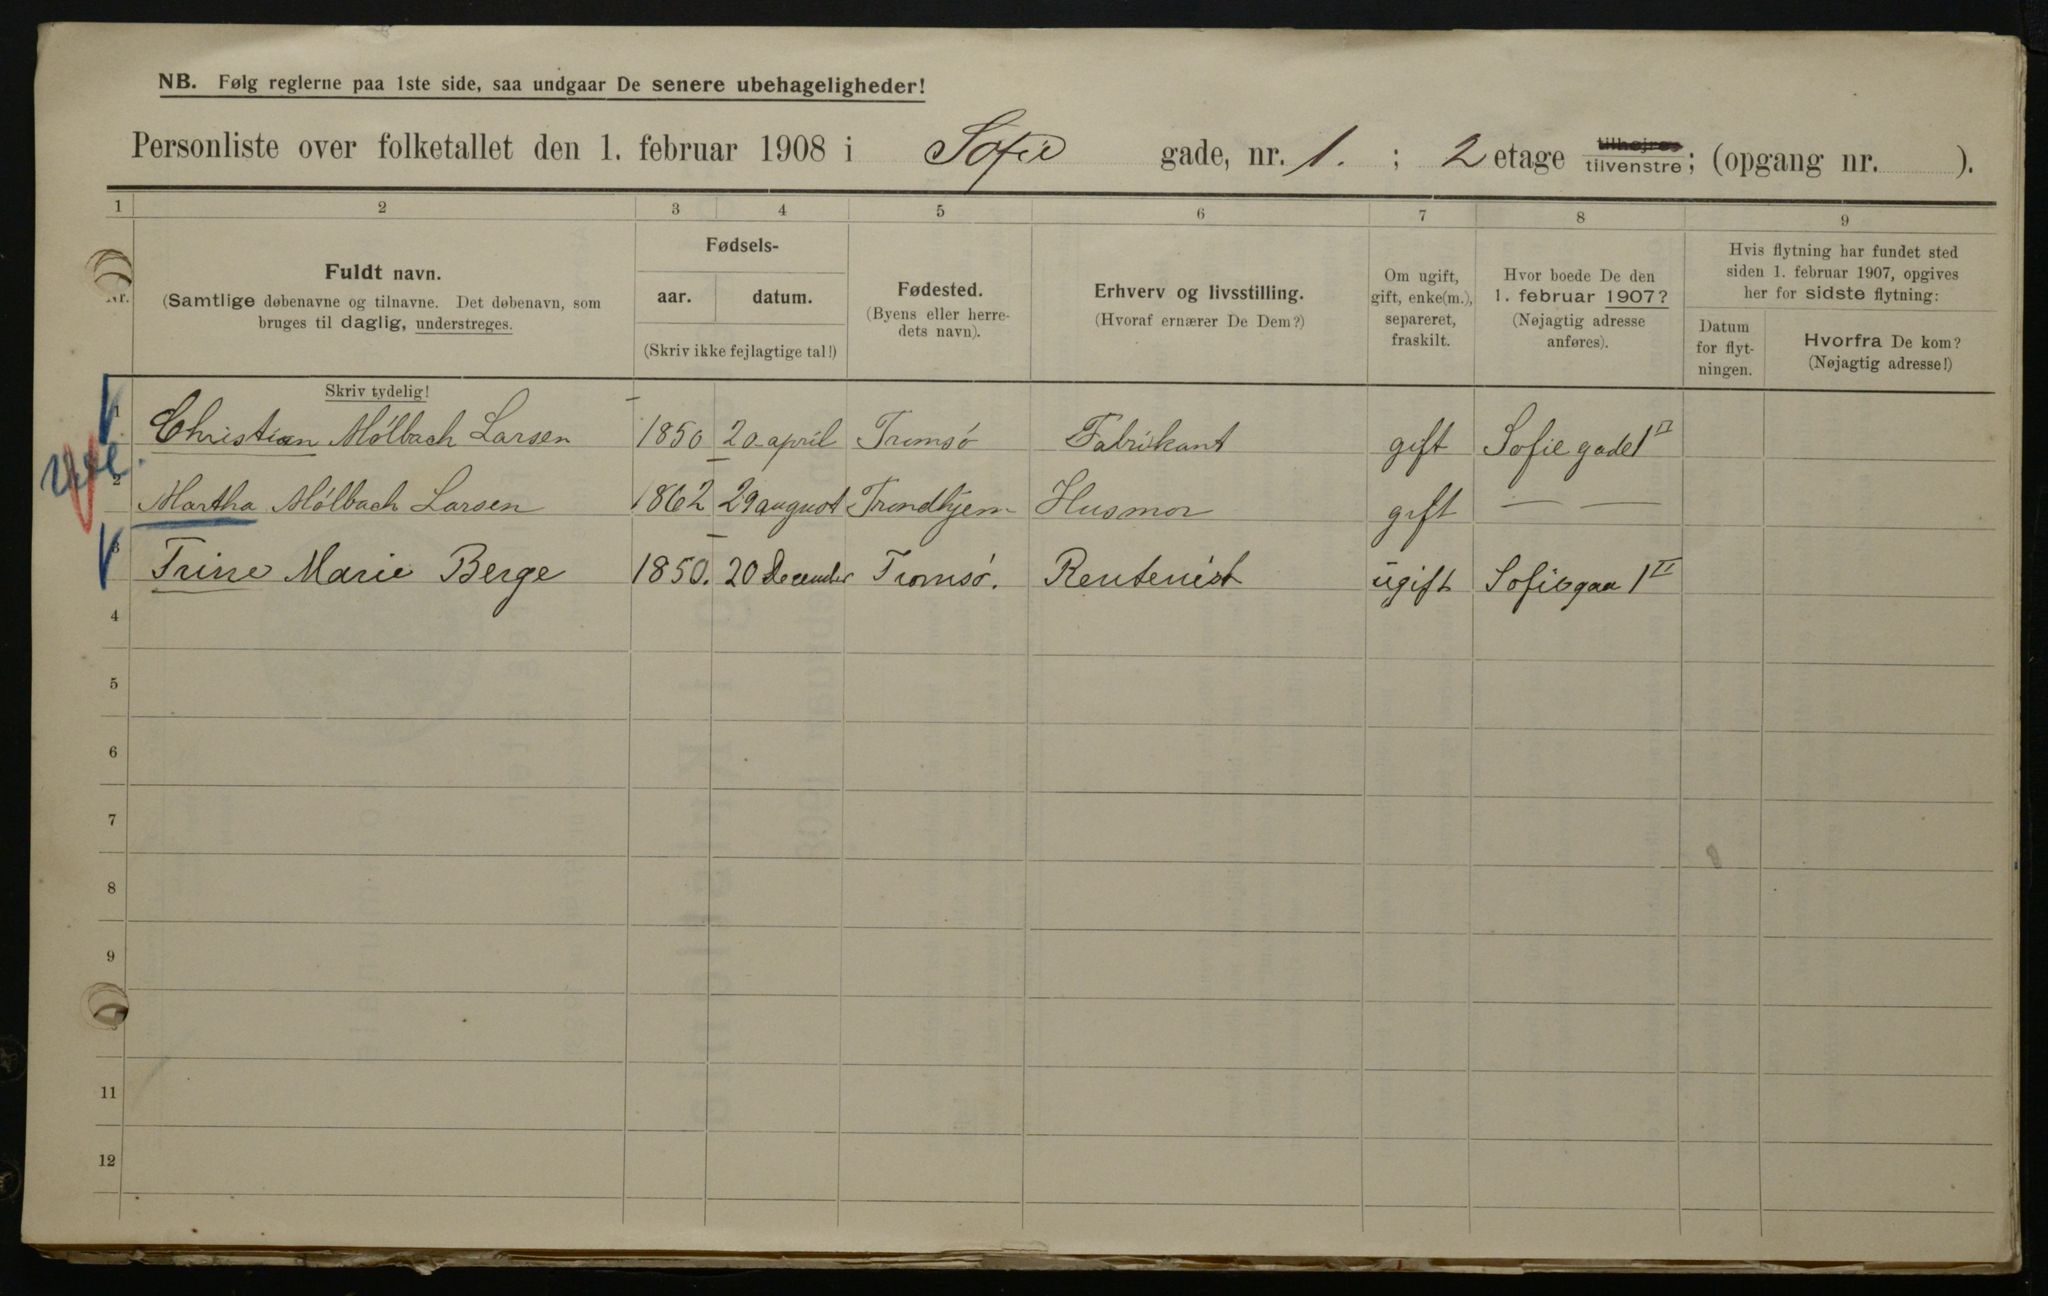 NB. Følg reglerne paa 1ste side, saa undgaar De senere ubehageligheder!
Personliste over folketallet den 1. februar 1908 i Sofie gade, nr. 1. ; 2 etage tilhøjre tilvenstre; (opgang nr. ).
1 2 3 4 5 6 7 8 9
Nr.
Fuldt navn.
(Samtlige døbenavne og tilnavne. Det døbenavn, som
bruges til daglig, understreges.
Skriv tydelig!
Fødsels-
aar. datum.
(Skriv ikke fejlagtige tal!)
Fødested.
(Byens eller herre-
dets navn).
Erhverv og livsstilling.
(Hvoraf ernærer De Dem?)
Om ugift,
gift, enke(m.),
separeret,
fraskilt.
Hvor boede De den
1. februar 1907?
(Nøjagtig adresse
anføres).
Hvis flytning har fundet sted
siden 1. februar 1907, opgives
her for sidste flytning:
Datum
for flyt-
ningen.
Hvorfra De kom?
(Nøjagtig adresse!)
1 Christian Mölbach Larsen 1850 20 april Tromsø Fabrikant gift Sofie gade 1 II
2 Martha Mölbach Larsen 1862 29 august Trondhjem Husmor gift — —
3 Trine Marie Berge 1850. 20 December Tromsø. Rentenist ugift Sofiegaa 1 II
4
5
6
7
8
9
11
12